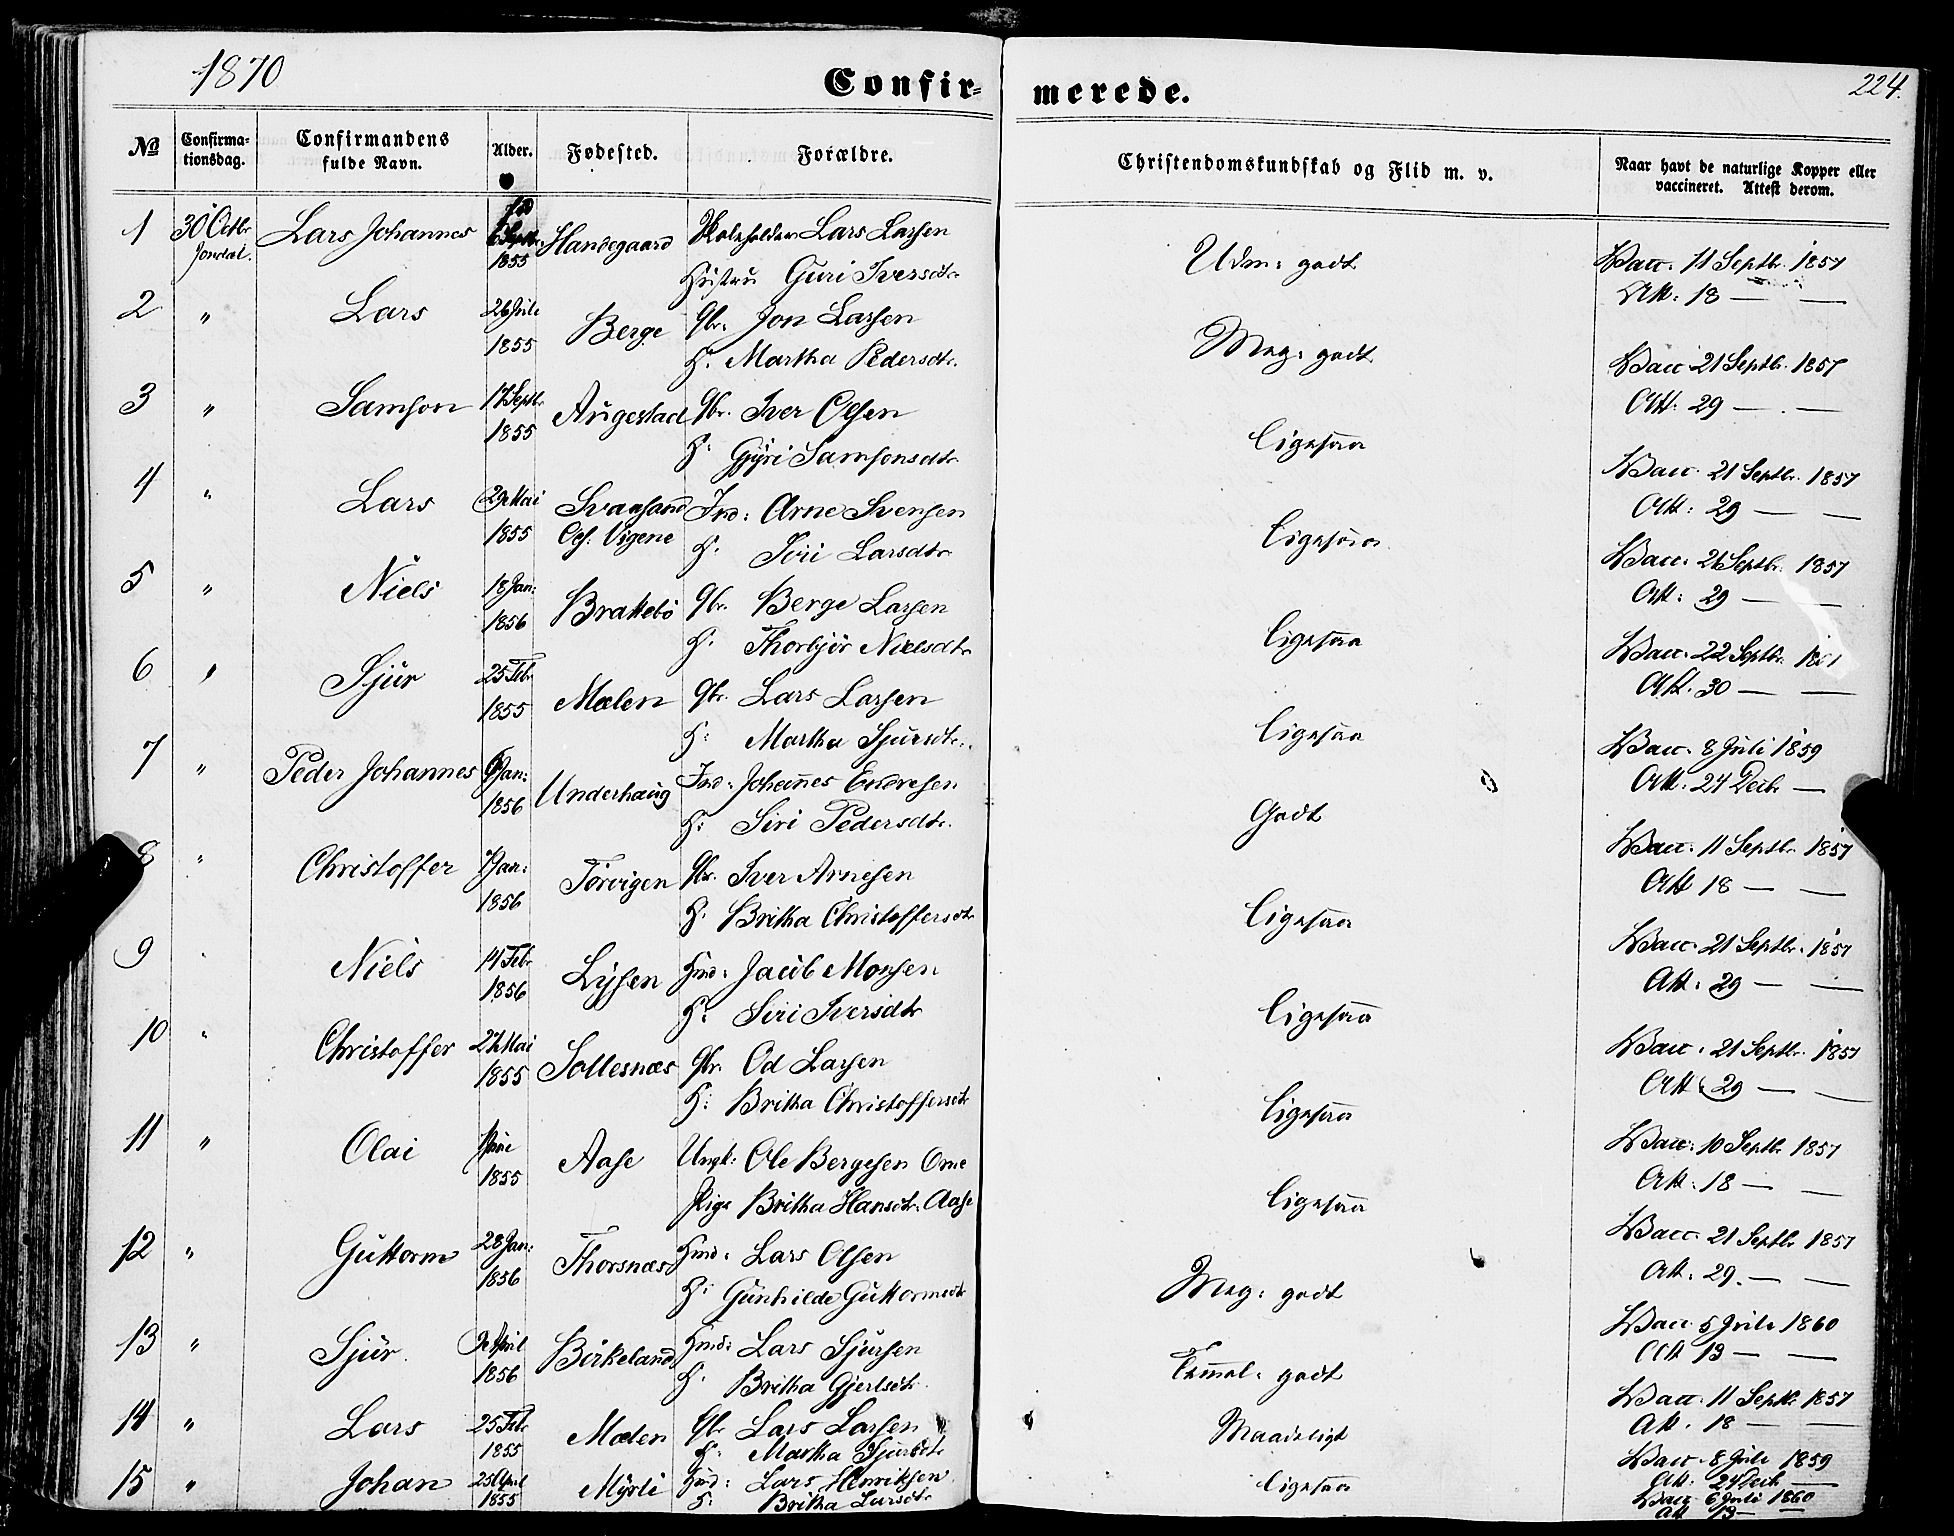 1870
Confir-
merede.
224.
№
Confirma-
tionsdag.
Confirmandens
fulde Navn.
Alder.
Fødested.
Forældre.
Christendomskundskab og Flid m. v.
Naar havt de naturlige Kopper eller
vaccineret. Attest derom.
1 30 Octbr Lars Johannes 6 Septbr Handegaard Skoleholder Lars Larsen
Jondal. 1855 Hustru Guri Iversdtr
Udm: godt
Vacc. 11 Septbr. 1857
Att: 18 — —
2 " Lars 26 Juli Berge Gbr. Jon Larsen
1855 H. Martha Pedersdtr.
Meg: godt
Vacc 21 Septbr. 1857
Att: 29 — —
3 " Samson 17 Septbr Augestad Gbr. Iver Olsen
1855 H: Gjyri Samsonsdtr
Ligesaa
Vacc. 21 Septbr. 1857
Att: 29 — —
4 " Lars 29 Mai Svansand Ind: Arne Svensen
1855 Vigene H. Siri Larsdtr
Ligesaa
Vacc. 21 Septbr. 1857
Att: 29 — —
5 " Niels 18 Jan: Brakebö Gbr. Berge Larsen
1856 H. Thorbjör Nielsdtr
Ligesaa
Vacc. 22 Septbr.
Att. 30 — —
6 " Sjur 25 Febr Mælen Gbr. Lars Larsen
1855 H: Martha Sjursdtr.
Ligesaa
Vacc. 8 Juli 1859
Att: 24 Decbr —
7 " Peder Johannes Jan: Underhaug Ind: Johannes Endresen
1856 H: Siri Pedersdtr.
Godt
Vacc. 11 Septbr. 1857
Att 18 — —
8 " Christoffer Jan: Torvigen Gbr. Iver Arnesen
1856 H. Britha Christoffersdtr
Ligesaa
Vacc. 21 Septbr. 1857
Att. 29 — —
9 " Niels 14 Febr Lysen Hmd: Jacob Monsen
1856 H. Siri Iversdtr
Ligesaa
Vacc. 21 Septbr. 1857
Att 29 — —
10 " Christoffer 27 Mai Sollesnæs Gbr. Od Larsen
1855 H: Britha Christoffersdtr
Ligesaa
Vacc. 10 Septbr 1857
Att. 18 — —
11 " Olai Aase Ungk: Ole Bergesen Orne
1855 Pige Britha Hansdtr. Aase
Ligesaa
Vacc 21 Septbr 1857
Att. 29. — —
12 " Guttorm 28 Jan: Thorsnæs Hmd: Lars Olsen
1856 H: Gunhilde Guttormsdtr
Meg: godt
Vacc 5 Juli 1860
Att 13 — —
13 " Sjur. April Birkeland Hmd: Lars Sjursen
1856 H. Britha Gjertsdtr.
Temmel: godt
Vacc. 11 Septbr 1857
Att. 18 — —
14 " Lars 25 Febr Mælen Gbr Lars Larsen
1855 H. Martha Sjursdtr
Maadeligt
Vacc. 8 Juli 1859
Att. 24 Decbr —
15 " Johan 25 April Myrli Hmd: Lars Henriksen
1855 H: Britha Larsdtr
Ligesaa
Vacc 6 Juli 1860
Att 13 — —